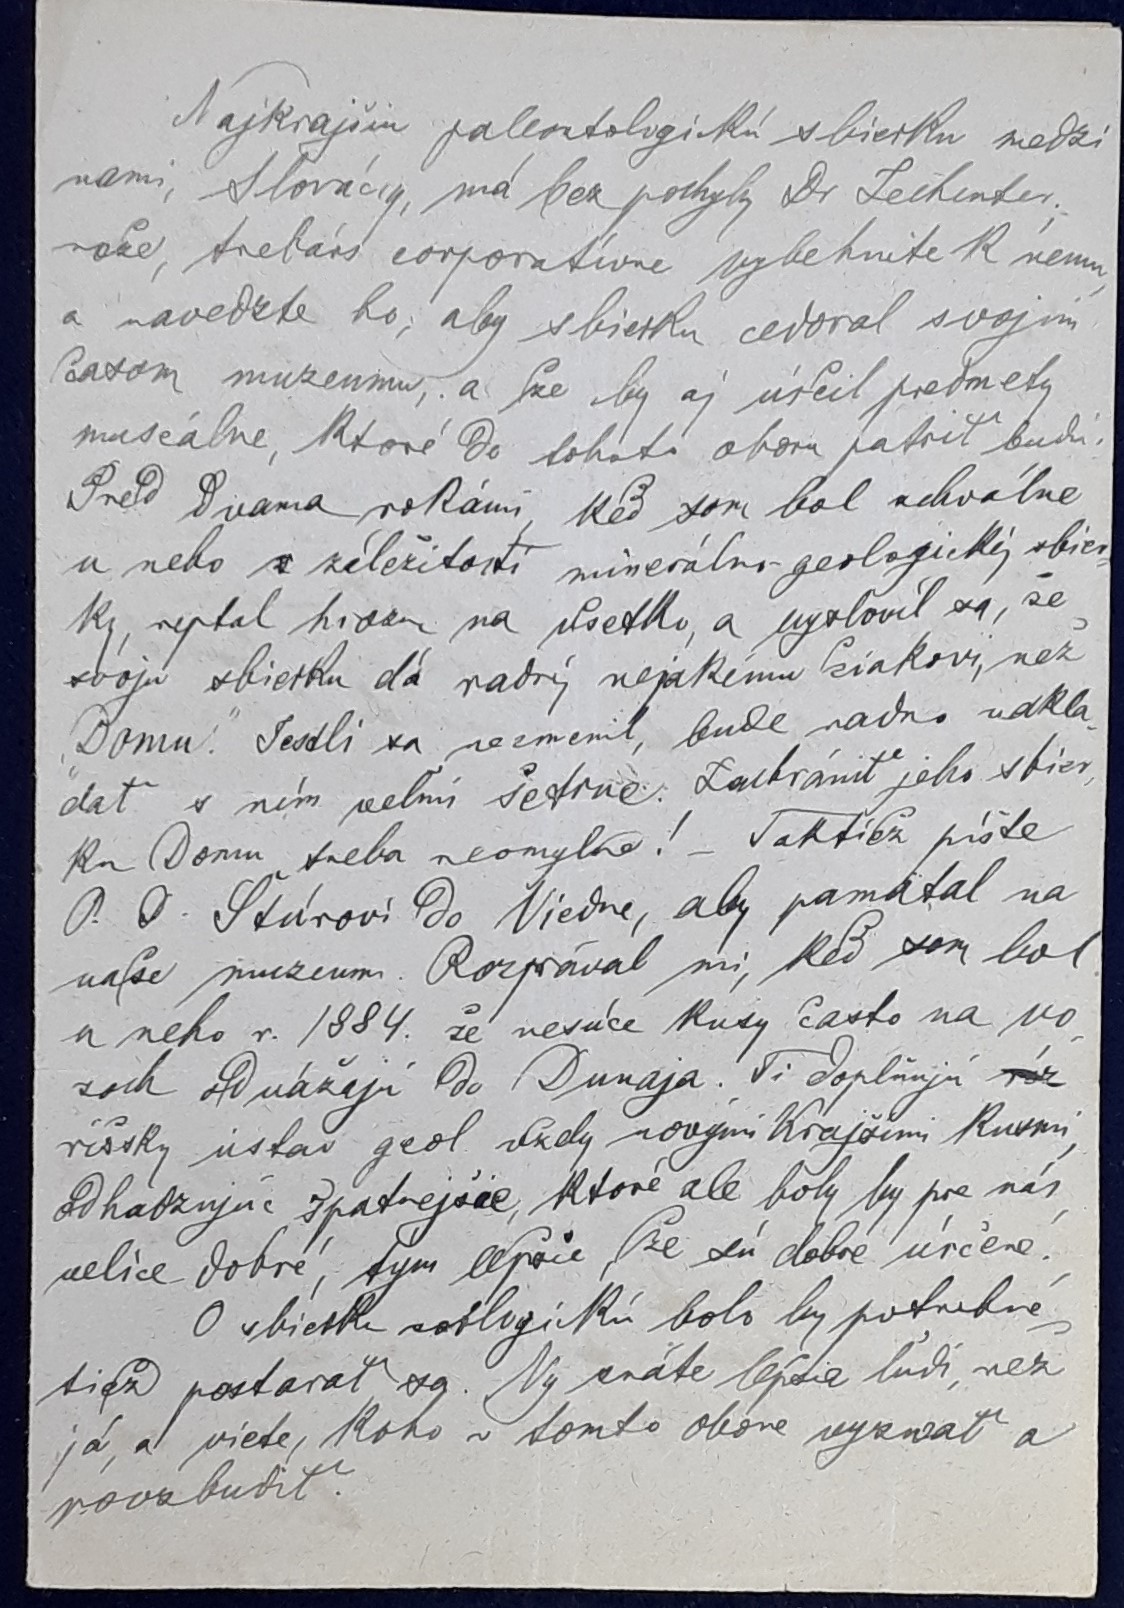 Najkrajšiu paleontologickú sbierku medzi
nami, Slováciy, má bez pochyby Dr Zechenter;
nože, trebárs corporatívne vybehnite k nemu,
a navedzte ho, aby sbierku cedoval svojím
časom muzeumu, a že by aj určil predmety
museálne, ktoré do tohoto oboru patriť budú.
Pred dvama rokámi, keď som bol schválne
u neho z záležitosti minerálno-geologickéj sbier-
ky, reptal hrozne na všetko, a vyslovil sa, že
svoju sbierku dá radšéj nejakému žiakovi, než
„Domu." Jestli sa nezmenil, bude radno nakla-
dať s ním veľmi šetrne. Zachrániť jeho sbier-
ku Domu treba neomylne! — Taktiež píšte
P. D. Štúrovi do Viedne, aby pamätal na
naše muzeum. Rozprával mi, keď som bol
u neho r. 1884. že nesúce kusy často na vo-
zoch odvážajú do Dunaja. Ti doplňujú
ríšsky ústav geol. vždy novými krajšími kusmi,
odhadzujúc špatnejšie, ktoré ale boly by pre nás
velice dobré, tým lepšie, že sú dobre určené.
O sbierku zoologickú bolo by potrebné
tiež postarať sa. Vy znáte lepšie ľudí, než
já, a viete, koho v tomto obore vyzvať a
povzbudiť.